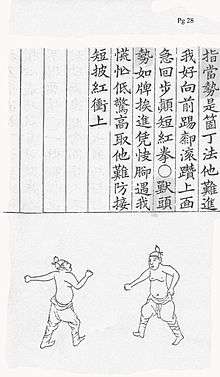 Pg 28
指當勢是箇丁法他難進
我好向前踢䣛滾躦上面
急回步顛短紅拳○獸頭
勢如牌挨進凭快脚遇我
慌忙低驚高取他難防接
短披紅衝上